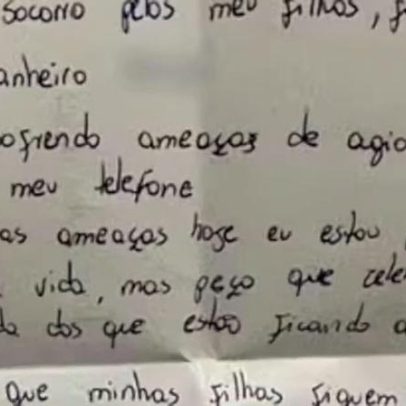 socorro pelos meu filhos,
anheiro
ofrendo ameaças de agio
meu telefone
as ameaças hoje eu estou
vida, mas peço que
da dos que estão ficando
que minhas filhas fiquem